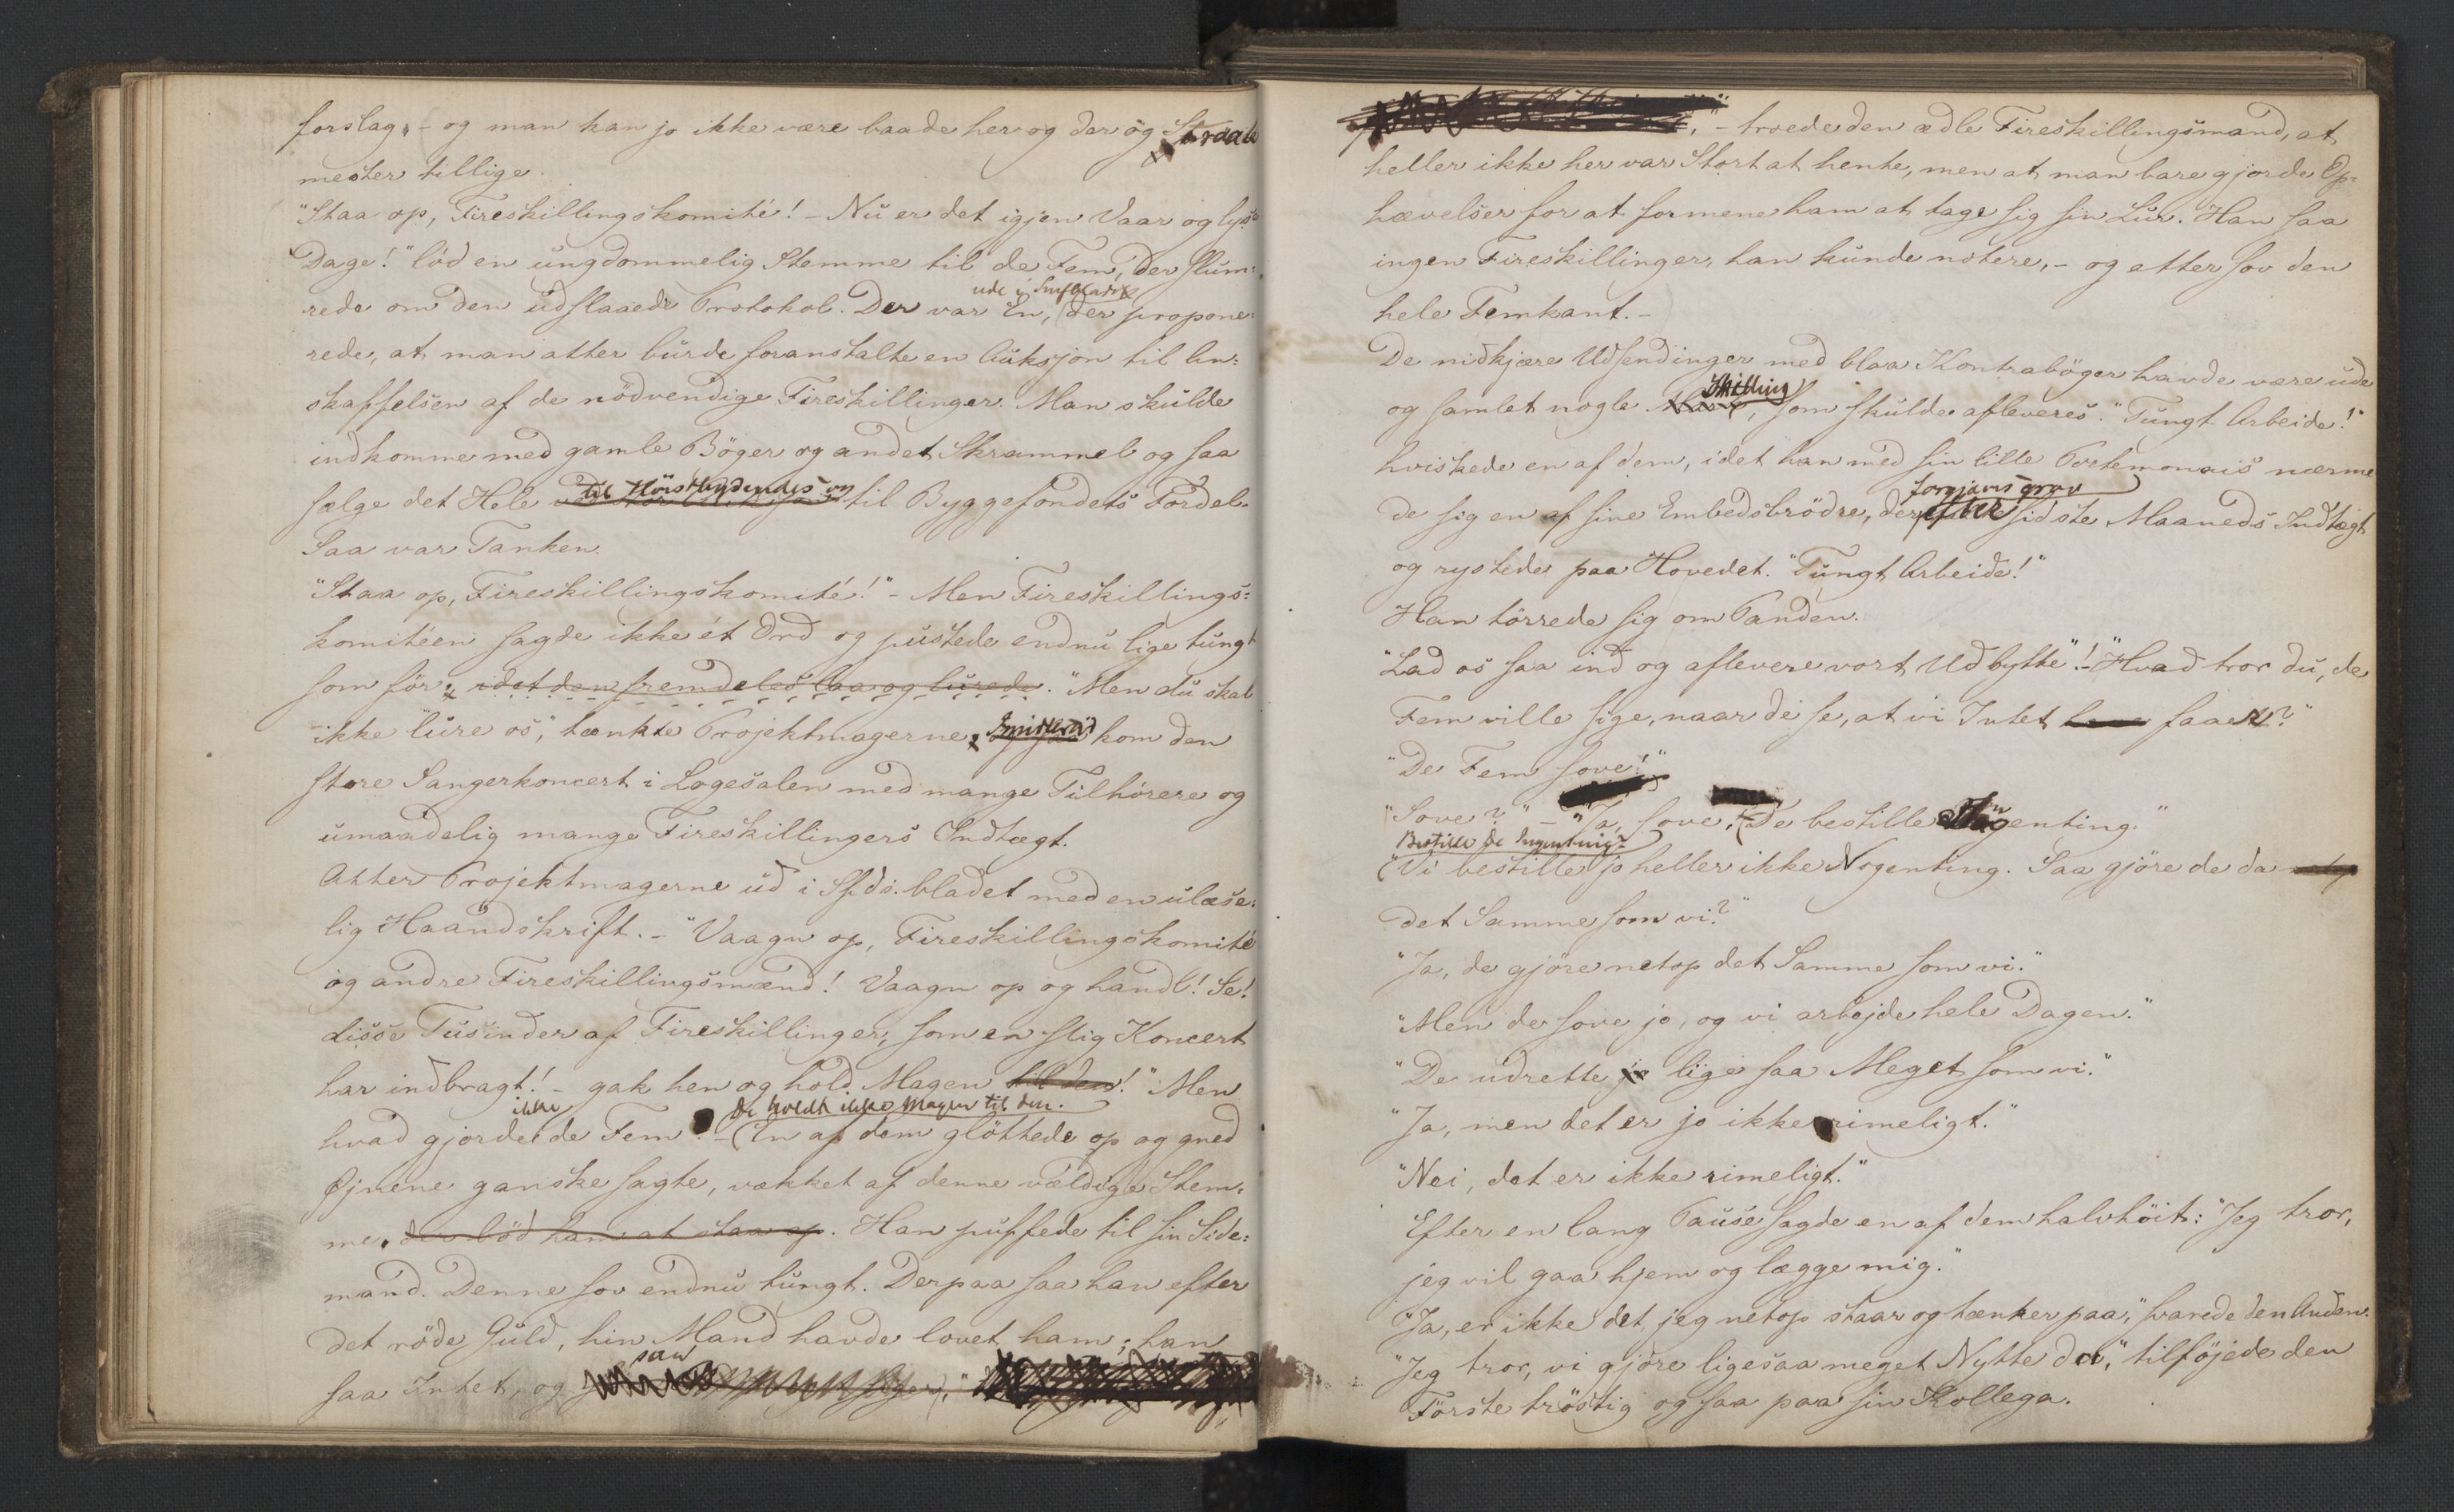 forslag, - og man kan jo ikke være baade her og der og
mester tillige.
"Staa op, Fireskillingskomité! - Nu er det igjen Vaar og lyse
Dage!" lød en ungdommelig Stemme til de Fem, der slum-
ude i
rede om den udslaaede Protokol. Der var Èn, der propone-
rede, at man atter burde foranstalte en Auksjon til An-
skaffelsen af de nödvendige Fireskillinger. Man skulde
indkomme med gamle Böger og andet Skrammel og saa
til Höistbydendes og
sælge det Hele til Byggefondets Fordel.
Saa var Tanken.
"Staa op, Fireskillingskomité!" - Men Fireskillings-
komitéen sagde ikke ét Ord og pustede endnu lige tungt
som för, idet den fremdeles laa og lurede. "Men du skal
ikke lure os," tænkte Projektmagerne, kom den
store Sangerkoncert i Logesalen med mange Tilhörere og
umaadelig mange Fireskillingers Indtægt.
Atter Projektmagerne ud i Sfds.bladet med en ulæse-
lig Haandskrift. - "Vaagn op, Fireskillingskomité
og andre Fireskillingsmænd! Vaagn op og handl! Se!
disse Tusinder af Fireskillinger, som en slig Koncert
har indbragt! - gak hen og hold Magen til den!" Men
ikke De holdt ikke Magen til den.
hvad gjorde de Fem - En af dem glöttede op og gned
Øjnene ganske sagte, vækket af denne vældige Stem-
me, der bød ham at staa op. Han puffede til sin Side-
mand. Denne sov endnu tungt. Derpaa saa han efter
det röde Guld, hin Mand havde lovet ham; han
saa Intet, og
- troede den ædle Fireskillingsmand, at
heller ikke her var Stort at hente, men at man bare gjorde Op-
hævelser for at formene ham at tage sig sin Lur. Han saa
ingen Fireskillinger, han kunde notere, - og atter sov den
hele Femkant. -
De nidkjære Udsendinger med blaa Kontraböger havde være ude
Skilling
og samlet nogle , som skulde afleveres. "Tungt Arbeide!"
hviskede en af dem, idet han med sin lille Portemonais nærme
forgjæves
de sig en af sine Embedsbrödre, der efter sidste Maaneds Indtægt
og rystede paa Hovedet. "Tungt Arbeide!"
Han törrede sig om Panden.
"Lad os saa ind og aflevere vort Udbytte"! - "Hvad tror du, de
Fem ville sige, naar de se, at vi Intet faaet?"
"De Fem sove!"
"Sove?" - "Ja, sove. De bestille Ingenting."
Bestille de Ingenting?
"Vi bestille jo heller ikke Nogenting. Saa gjöre de da
det Samme som vi?"
"Ja, de gjöre netop det Samme som vi."
"Men de sove jo, og vi arbejde hele Dagen."
"De udrette jo lige saa Meget som vi."
"Ja, men det er jo ikke rimeligt."
"Nei, det er ikke rimeligt."
Efter en lang Pause sagde en af dem halvhöit: "Jeg tror,
jeg vil gaa hjem og lægge mig."
"Ja, er ikke det, jeg netop staar og tænker paa," svarede den Anden.
"Jeg tror, vi gjöre ligesaa meget Nytte da," tilföjede den
Förste tröstig og saa paa sin Kollega.